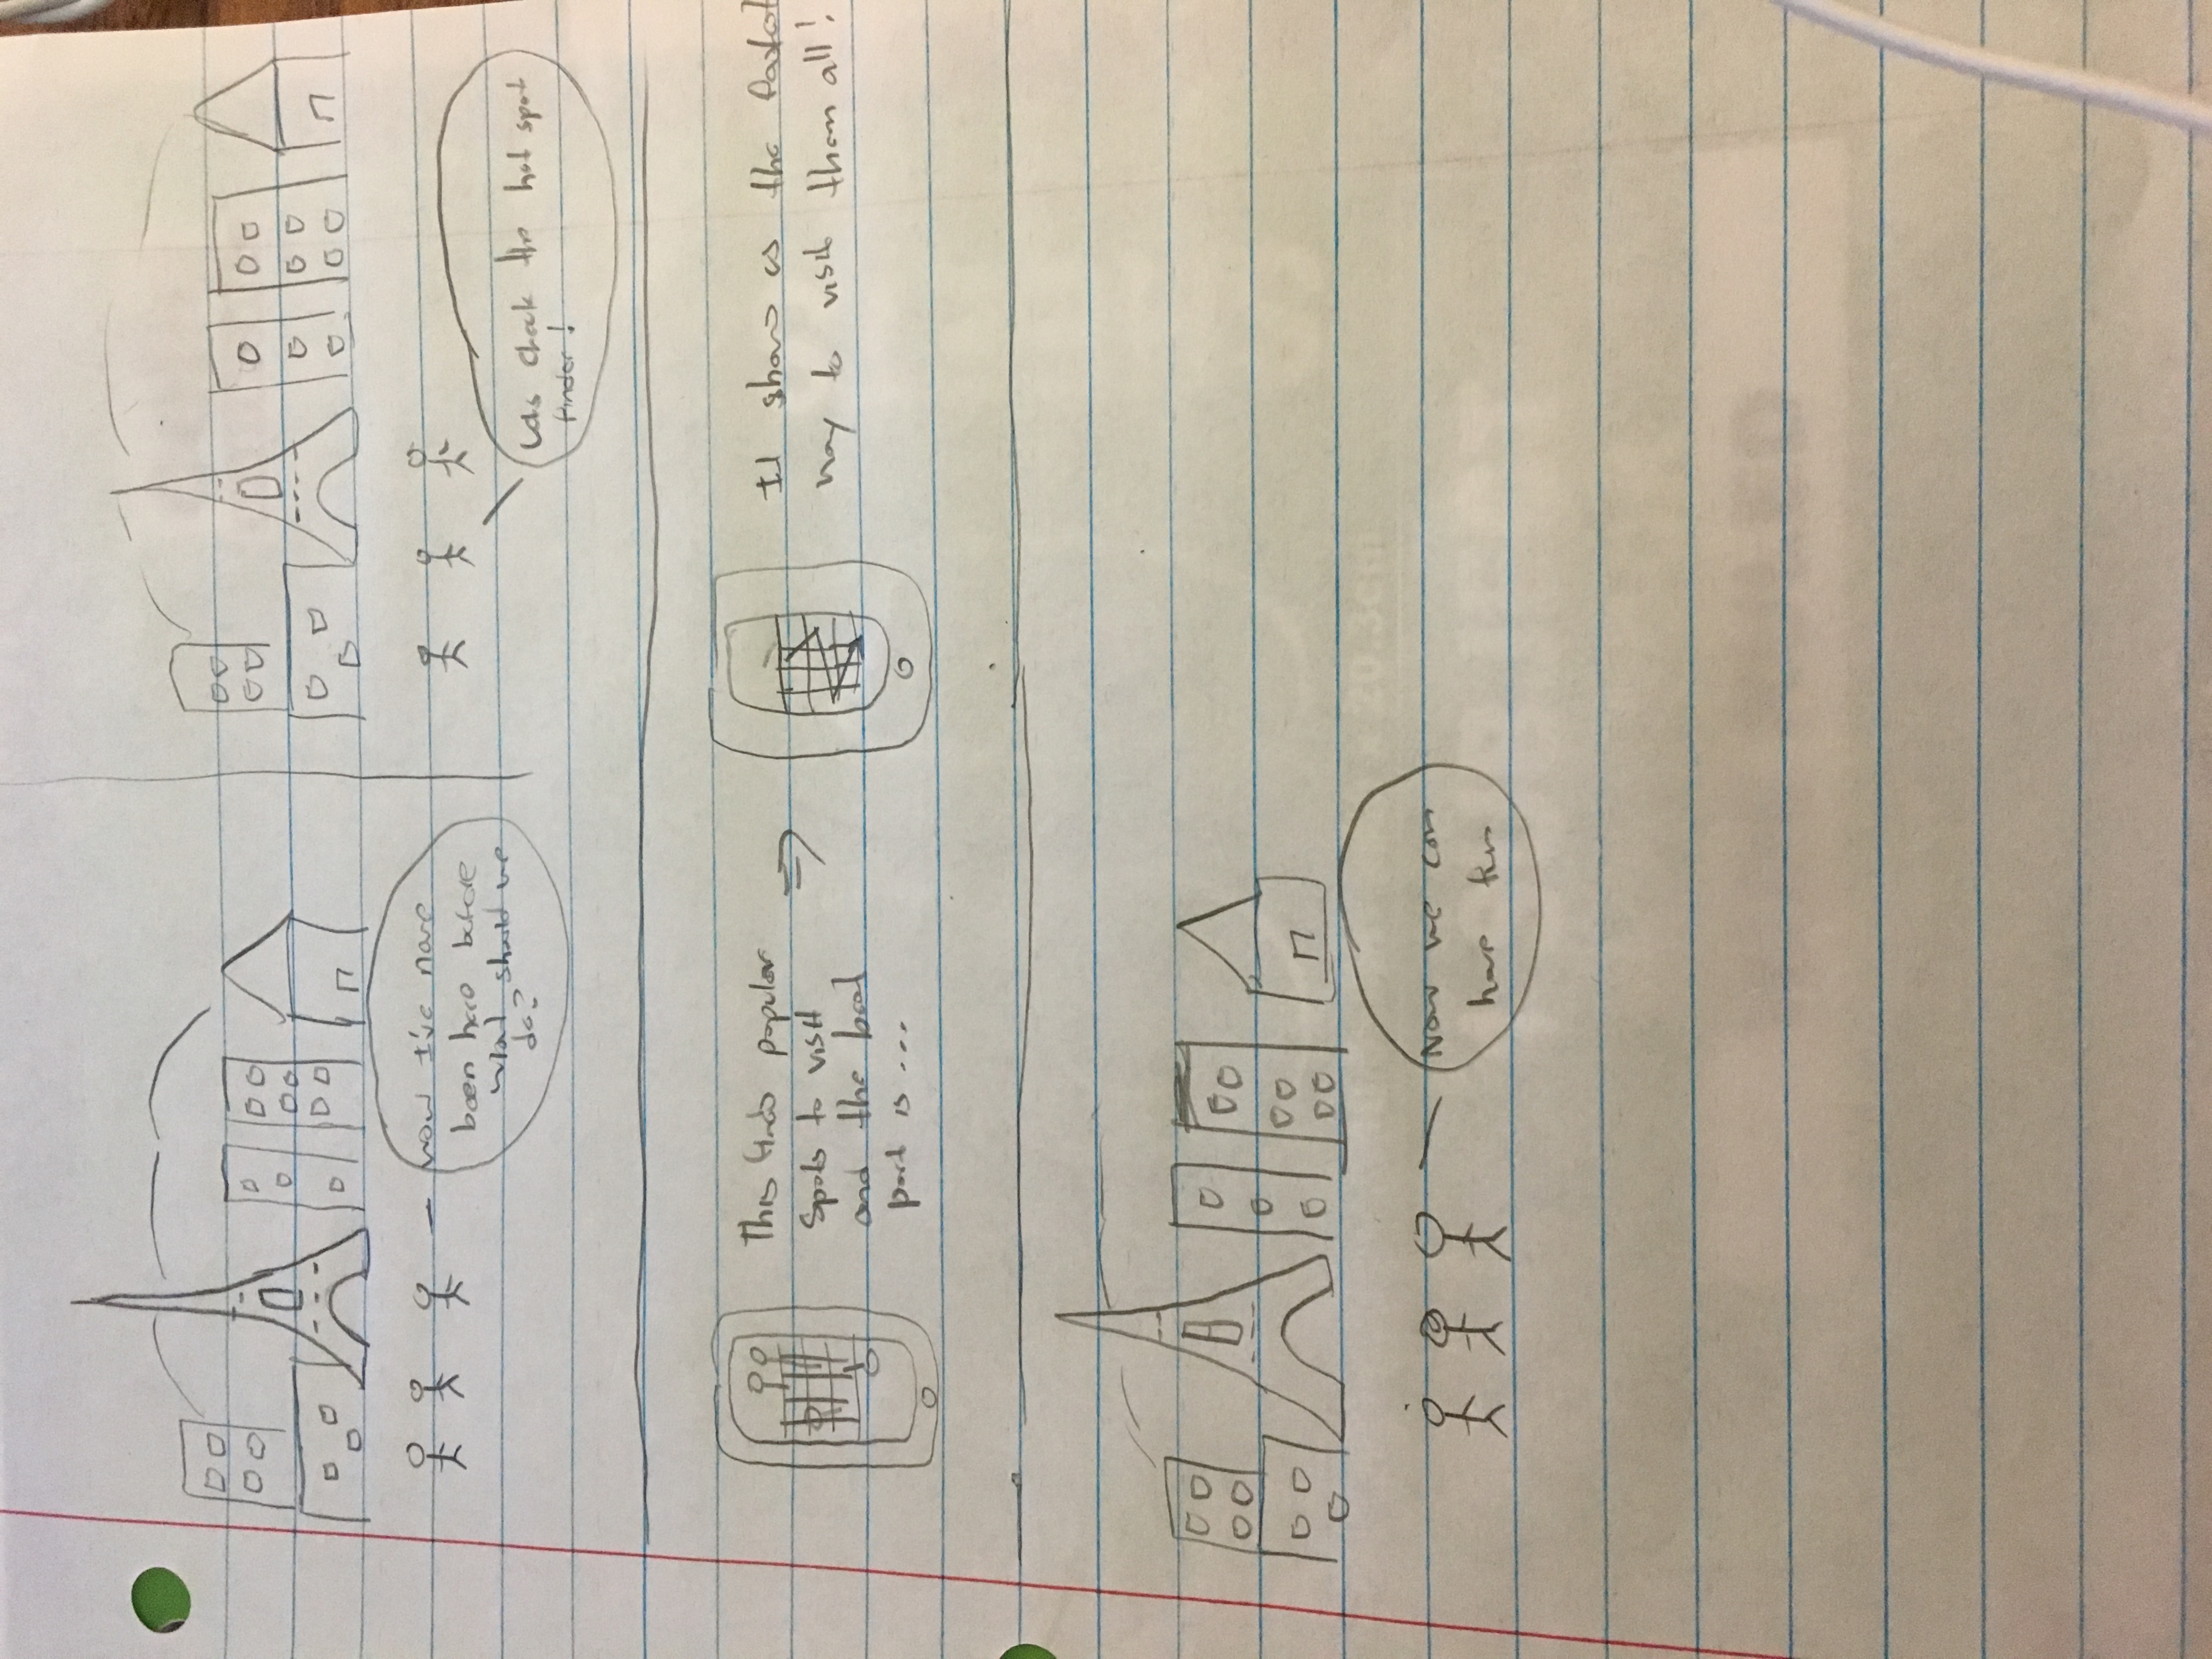 wow I've never
been here before
what should we
do?
Lets check the hot spot
finder!
This finds popular
spots to visit
and the best
part is ...
It shows us the fastest
way to visit them all!
Now we can
have fun
20.3cm